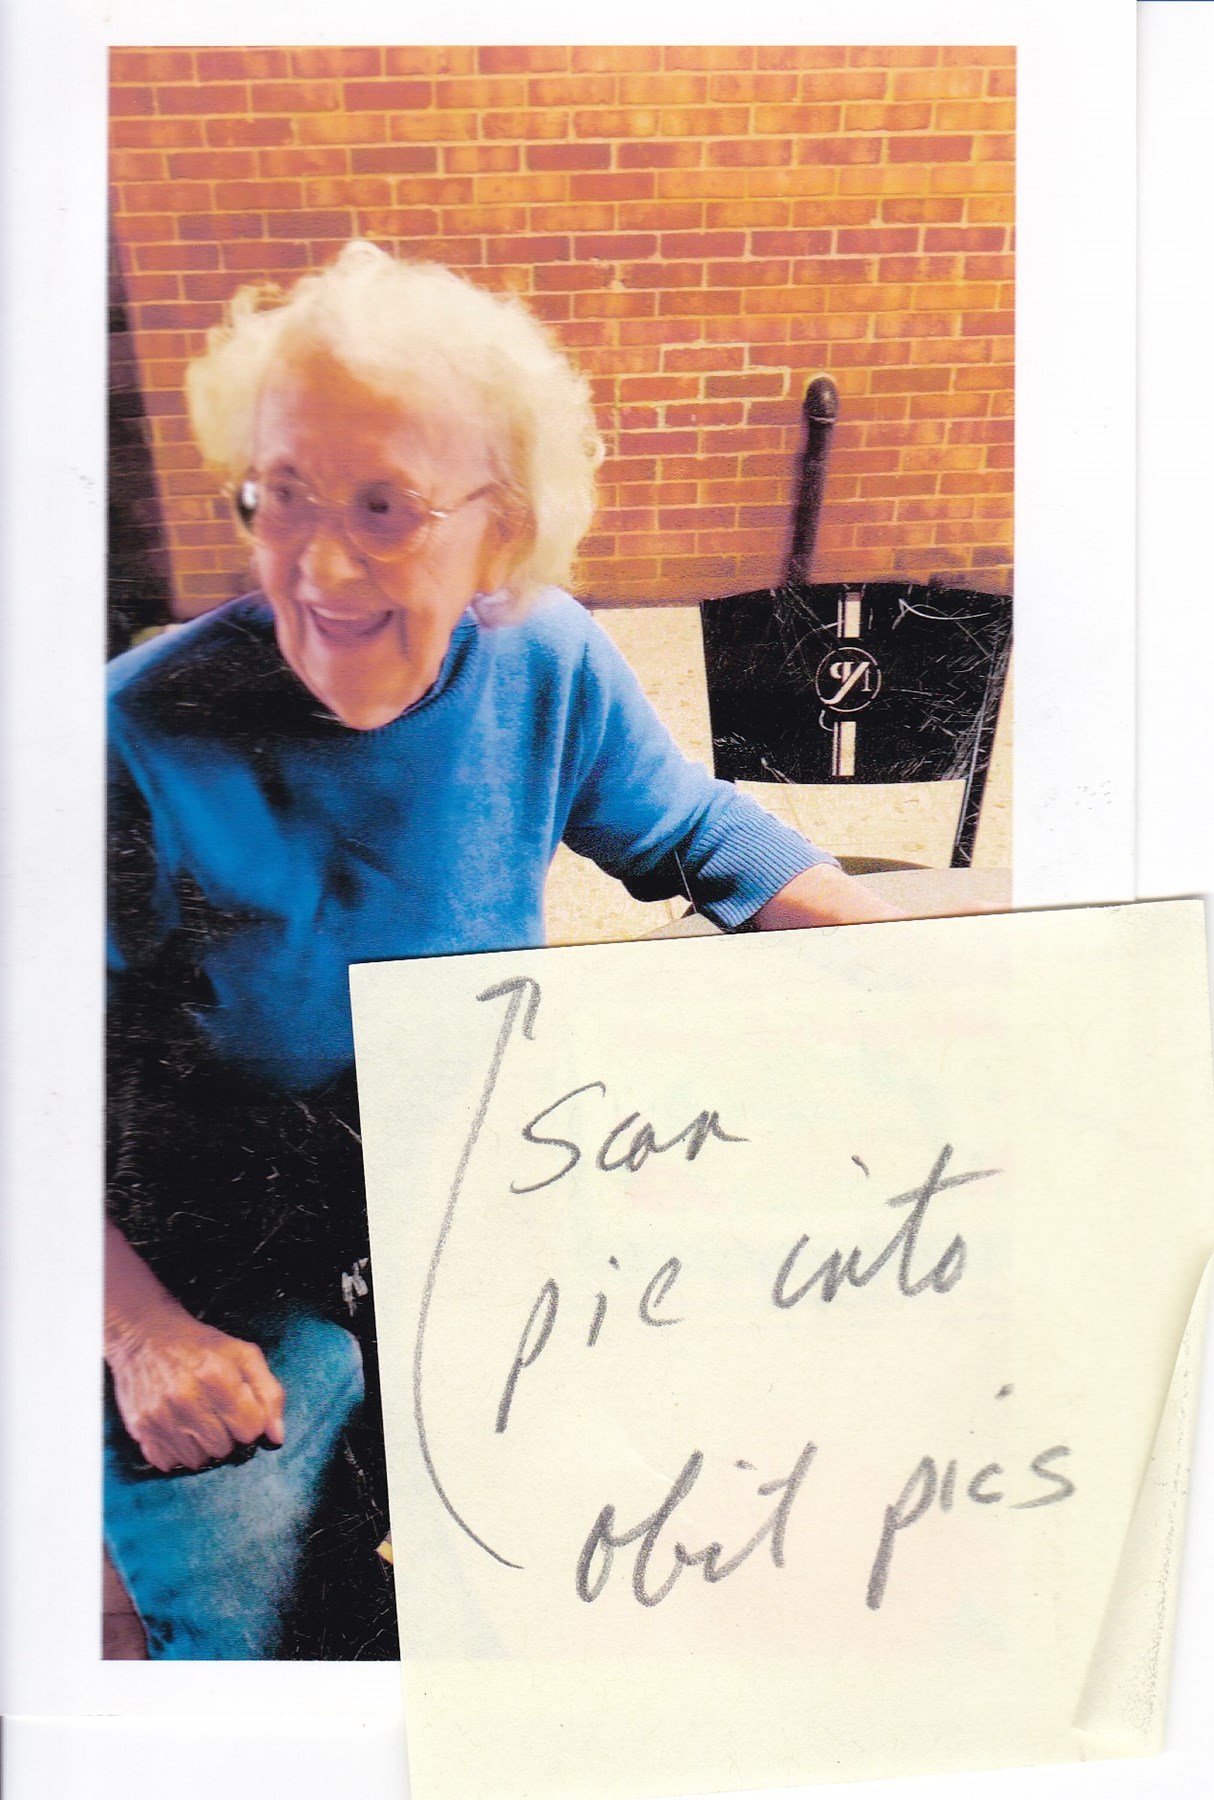 Scan
pic into
obit pics